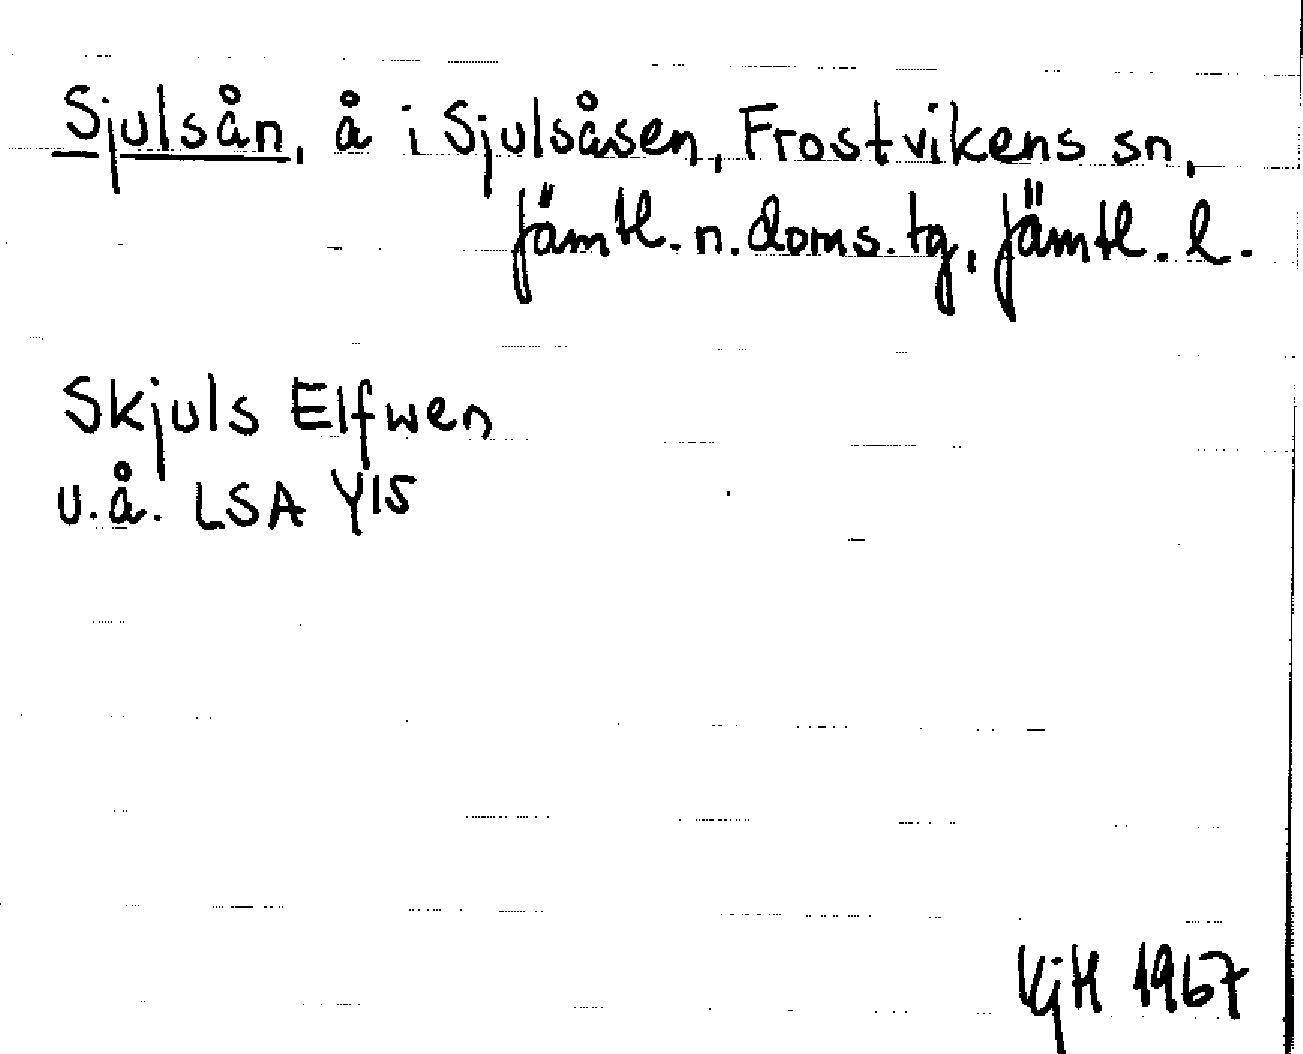 Sjulsån, å i Sjulsåsen, Frostvikens sn,
Jämtl. n. doms. tg, Jämtl. l.
Skjuls Elfwen
u.å. LSA Y15
KjH 1967